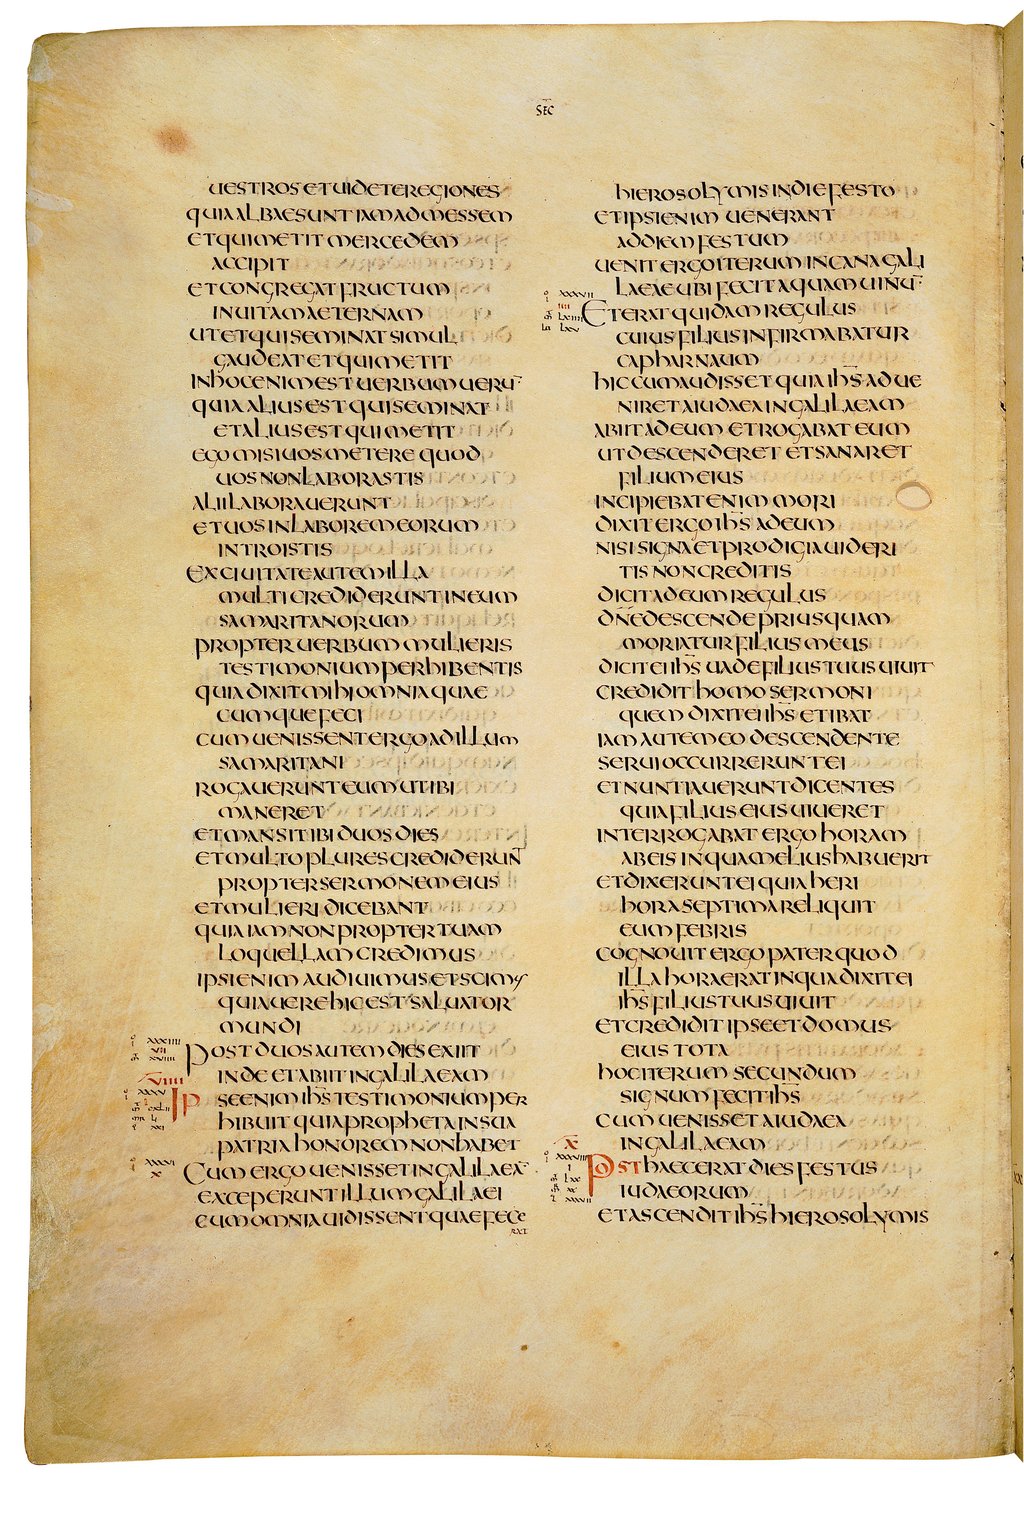 SEC
UESTROS ET UIDETE REGIONES
QUIA ALBAE SUNT IAM AD MESSEM
ET QUI METIT MERCEDEM
ACCIPIT
ET CONGREGAT FRUCTUM
IN UITAM AETERNAM
UT ET QUI SEMINAT SIMUL
GAUDEAT ET QUI METIT
IN HOC ENIM EST UERBUM UERU̅
QUIA ALIUS EST QUI SEMINAT
ET ALIUS EST QUI METIT
EGO MISI UOS METERE QUOD
UOS NON LABORASTIS
ALII LABORAUERUNT
ET UOS IN LABOREM EORUM
INTROISTIS
EX CIUITATE AUTEM ILLA
MULTI CREDIDERUNT IN EUM
SAMARITANORUM
PROPTER UERBUM MULIERIS
TESTIMONIUM PERHIBENTIS
QUIA DIXIT MIHI OMNIA QUAE
CUMQUE FECI
CUM UENISSENT ERGO AD ILLUM
SAMARITANI
ROGAUERUNT EUM UT IBI
MANERET
ET MANSIT IBI DUOS DIES
ET MULTO PLURES CREDIDERUNT
PROPTER SERMONEM EIUS
ET MULIERI DICEBANT
QUIA IAM NON PROPTER TUAM
LOQUELLAM CREDIMUS
IPSI ENIM AUDIUIMUS ET SCIMUS
QUIA UERE HIC EST SALUATOR
MUNDI
POST DUOS AUTEM DIES EXIIT
INDE ET ABIIT IN GALILAEAM
UIIII
IPSE ENIM IH̅S TESTIMONIUM PER
HIBUIT QUIA PROPHETA IN SUA
PATRIA HONOREM NON HABET
XXXVI
X
CUM ERGO UENISSET IN GALILAEA̅
EXCEPERUNT ILLUM GALILAEI
CUM OMNIA UIDISSENT QUAE FECE
RAT
HIEROSOLYMIS IN DIE FESTO
ET IPSI ENIM UENERANT
AD DIEM FESTUM
UENIT ERGO ITERUM IN CANA GALI
LAEAE UBI FECIT AQUAM UINU̅
XXXVII
ET ERAT QUIDAM REGULUS
CUIUS FILIUS INFIRMABATUR
CAPHARNAUM
HIC CUM AUDISSET QUIA IH̅S ADUE
NIRET A IUDAEA IN GALILAEAM
ABIIT AD EUM ET ROGABAT EUM
UT DESCENDERET ET SANARET
FILIUM EIUS
INCIPIEBAT ENIM MORI
DIXIT ERGO IH̅S AD EUM
NISI SIGNA ET PRODIGIA UIDERI
TIS NON CREDITIS
DICIT AD EUM REGULUS
DN̅E DESCENDE PRIUSQUAM
MORIATUR FILIUS MEUS
DICIT EI IH̅S UADE FILIUS TUUS UIUIT
CREDIDIT HOMO SERMONI
QUEM DIXIT EI IH̅S ET IBAT
IAM AUTEM EO DESCENDENTE
SERUI OCCURRERUNT EI
ET NUNTIAUERUNT DICENTES
QUIA FILIUS EIUS UIUERET
INTERROGABAT ERGO HORAM
AB EIS IN QUA MELIUS HABUERIT
ET DIXERUNT EI QUIA HERI
HORA SEPTIMA RELIQUIT
EUM FEBRIS
COGNOUIT ERGO PATER QUOD
ILLA HORA ERAT IN QUA DIXIT EI
IH̅S FILIUS TUUS UIUIT
ET CREDIDIT IPSE ET DOMUS
EIUS TOTA
HOC ITERUM SECUNDUM
SIGNUM FECIT IH̅S
CUM UENISSET A IUDAEA
IN GALILAEAM
X
POST HAEC ERAT DIES FESTUS
IUDAEORUM
ET ASCENDIT IH̅S HIEROSOLYMIS